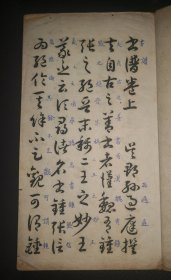 書譜卷上 吳郡孫過庭撰
夫自古之善書者漢魏有鍾
張之絕晉末稱二王之妙王
羲之云頃尋諸名書鍾張信
為絕倫其餘不足觀可謂鍾